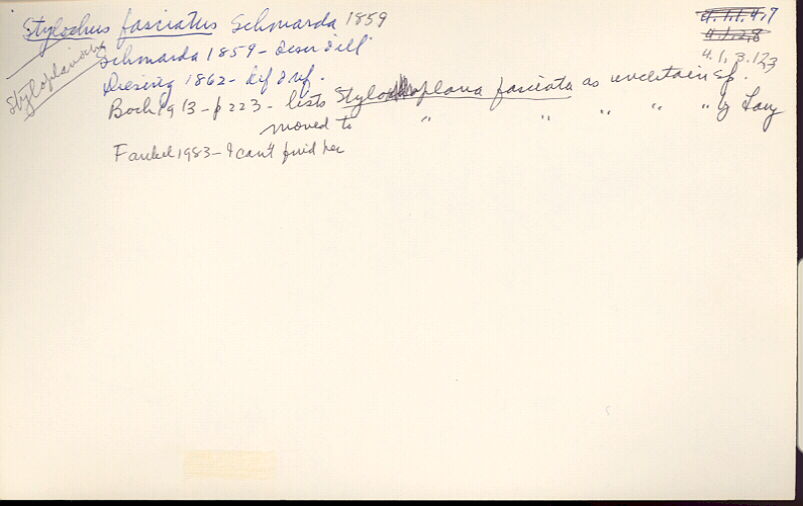 Stylochus fasciatus Schmarda 1859
4.1.1.4,7
4.1.2,8
4.1.3.123
Styloplanidae
Schmarda 1859 - descr & ill
Diesing 1862 - dif & nf.
Bock 1913 - p 223 - lists Styloplana fasciata as uncertain sp.
moved to " " " " " by Lang
Faubel 1983 - I can't find her